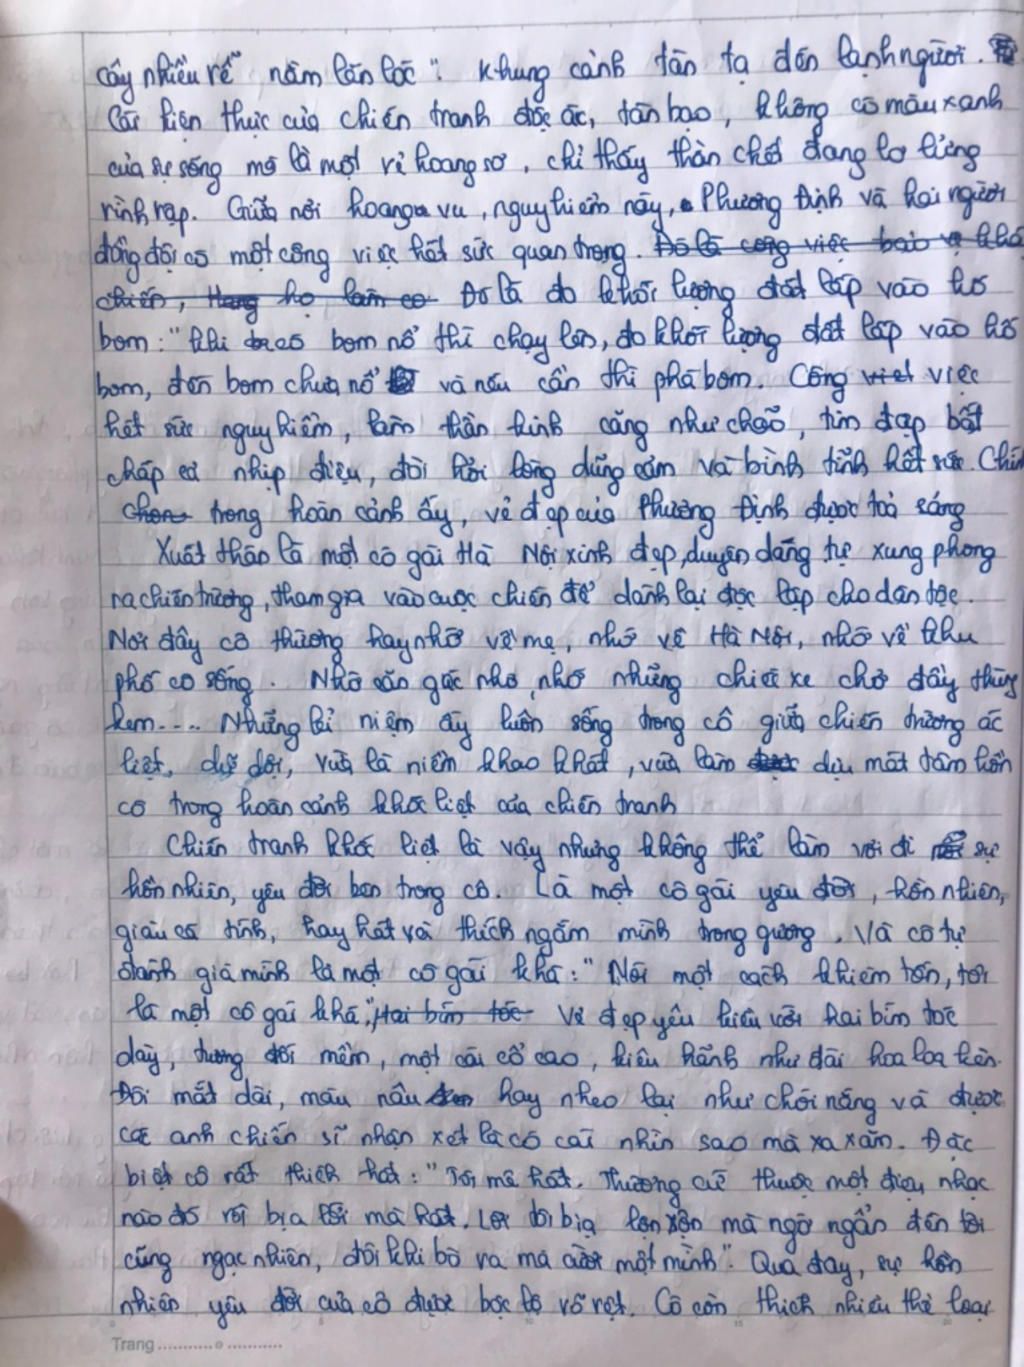 cây nhiều rễ nằm lăn lóc". Khung cảnh tàn tạ đến lạnh người.
Cái hiện thực của chiến tranh độc ác, tàn bạo, không có màu xanh
của sự sống mà là một vẻ hoang sơ, chỉ thấy thần chết đang lơ lửng
rình rập. Giữa nơi hoang vu, nguy hiểm này, Phương Định và hai người
đồng đội có một công việc hết sức quan trọng. Đó là công việc
chiến, họ làm co Đó là đo khối lượng đất lấp vào hố
bom: "khi có bom nổ thì chạy lên, đo khối lượng đất lấp vào hố
bom, đếm bom chưa nổ và nếu cần thì phá bom. Công viet việc
hết sức nguy hiểm, làm thần kinh căng như chão, tim đập bất
chấp cả nhịp điệu, đòi hỏi lòng dũng cảm và bình tĩnh hết sức. Chín
chon trong hoàn cảnh ấy, vẻ đẹp của Phương Định được toả sáng
Xuất thân là một cô gái Hà Nội xinh đẹp, duyên dáng tự xung phong
ra chiến trường, tham gia vào cuộc chiến để dành lại độc lập cho dân tộc.
Nơi đây cô thường hay nhớ về mẹ, nhớ về Hà Nội, nhớ về khu
phố cô sống. Nhớ căn gác nhỏ, nhớ những chiếc xe chở đầy thùng
kem.... Những kỉ niệm ấy luôn sống trong cô giữa chiến trường ác
liệt, dữ dội, vừa là niềm khao khát, vừa làm dịu mát tâm hồn
cô trong hoàn cảnh khốc liệt của chiến tranh
Chiến tranh khốc liệt là vậy nhưng không thể làm vơi đi sự
hồn nhiên, yêu đời bên trong cô. Là một cô gái yêu đời, hồn nhiên,
giàu cá tính, hay hát và thích ngắm mình trong gương. Và cô tự
đánh giá mình là một cô gái khá: "Nói một cách khiêm tốn, tôi
là một cô gái khá", Hai bím tóc Vẻ đẹp yêu kiều với hai bím tóc
dày, tương đối mềm, một cái cổ cao, kiêu hãnh như đài hoa loa kèn.
Đôi mắt dài, màu nâu hay nheo lại như chói nắng và được
các anh chiến sĩ nhận xét là có cái nhìn sao mà xa xăm. Đặc
biệt cô rất thích hát: "Tôi mê hát. Thường cứ thuộc một điệu nhạc
nào đó rồi bịa lời mà hát. Lời tôi bịa lộn xộn mà ngớ ngẩn đến tôi
cũng ngạc nhiên, đôi khi bò ra mà cười một mình". Qua đây, sự hồn
nhiên yêu đời của cô được bộc lộ rõ rệt. Cô còn thích nhiều thể loại
Trang